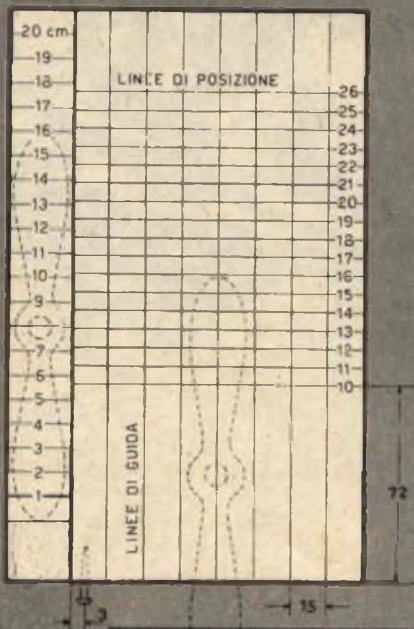 20 cm
19
18
17
16
15
14
13
12
11
10
9
7
6
5
4
3
2
1
LINEE DI POSIZIONE
26
25
24
23
22
21
20
19
18
17
16
15
14
13
12
11
10
LINEE DI GUIDA
72
3
15